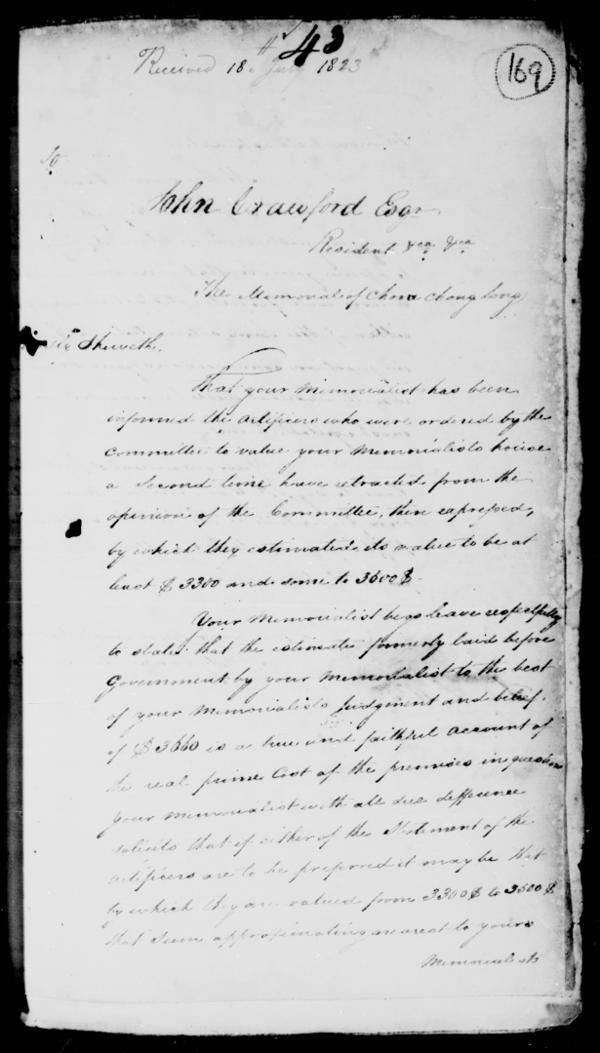 43
Received 18th July 1823
169
To
John Crawford Esqr
Resident &ca &ca
The Memorial of Choa Chong Long
Sheweth.
That your Memorialist has been
informed the artificers who were ordered by the
Committee to value your Memorialists house
a Second time have retracted from the
opinion of the Committee, then expressed,
by which they estimated its value to be at
least $ 3300 and some to 3600 $.
Your Memorialist begs leave respectfully
to state that the estimate formerly laid before
Government by your Memorialist to the best
of your Memorialists Judgment and belief.
of $ 3660 is a true and faithful account of
the real prime Cost of the premises in question
your Memorialist with all due defference
solicits that if either of the Statement of the
artificers are to be preferred it may be that
by which they are valued from 3300 $ to 3600 $
that Seem approximating nearest to yours
Memorialists